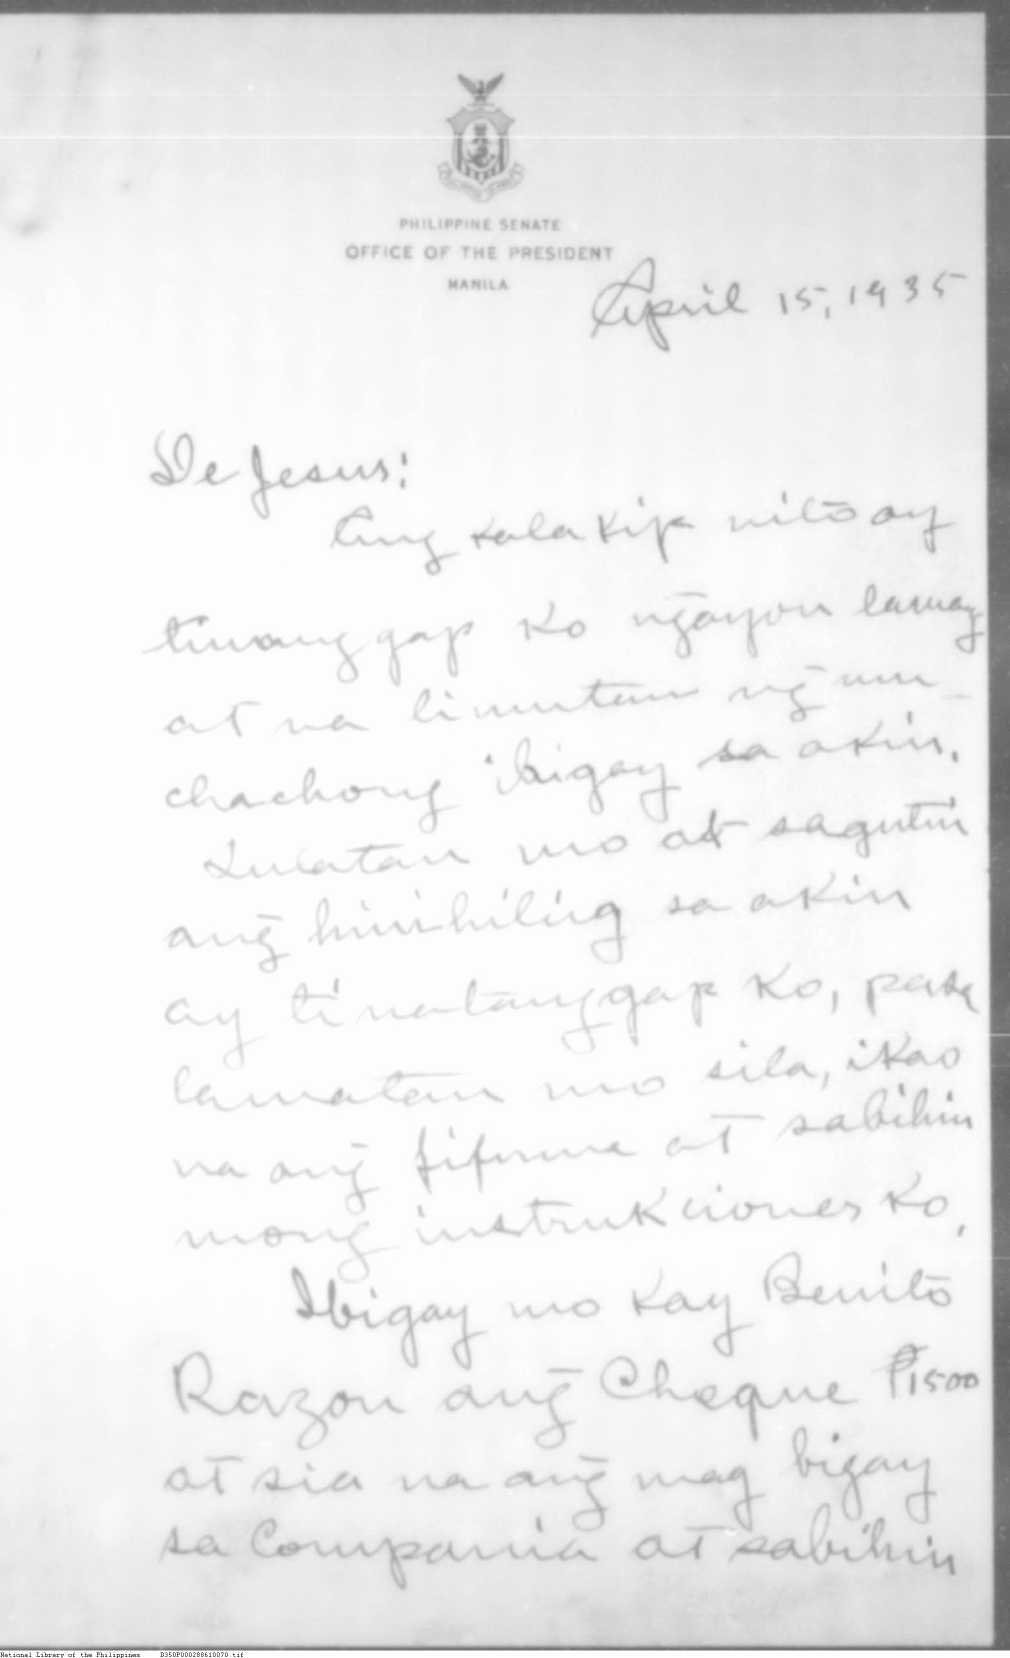 PHILIPPINE SENATE
OFFICE OF THE PRESIDENT
MANILA
April 15, 1935
De Jesus:
Ang kalakip nitō ay
tinanggap ko ngayon lamang
at na limutan nḡ mu-
chachong ibigay sa akin.
Sulatan mo at sagutin
anḡ hinihiling sa akin
ay tinatanggap ko, pasa
lamatan mo sila, ikao
na anḡ fifirma at sabihin
mong instrukciones ko.
Ibigay mo kay Benitō
Razon anḡ Cheque ₱1500
at sia na anḡ mag bigay
sa Compania at sabihin
National Library of the Philippines D350P000288610070.tif